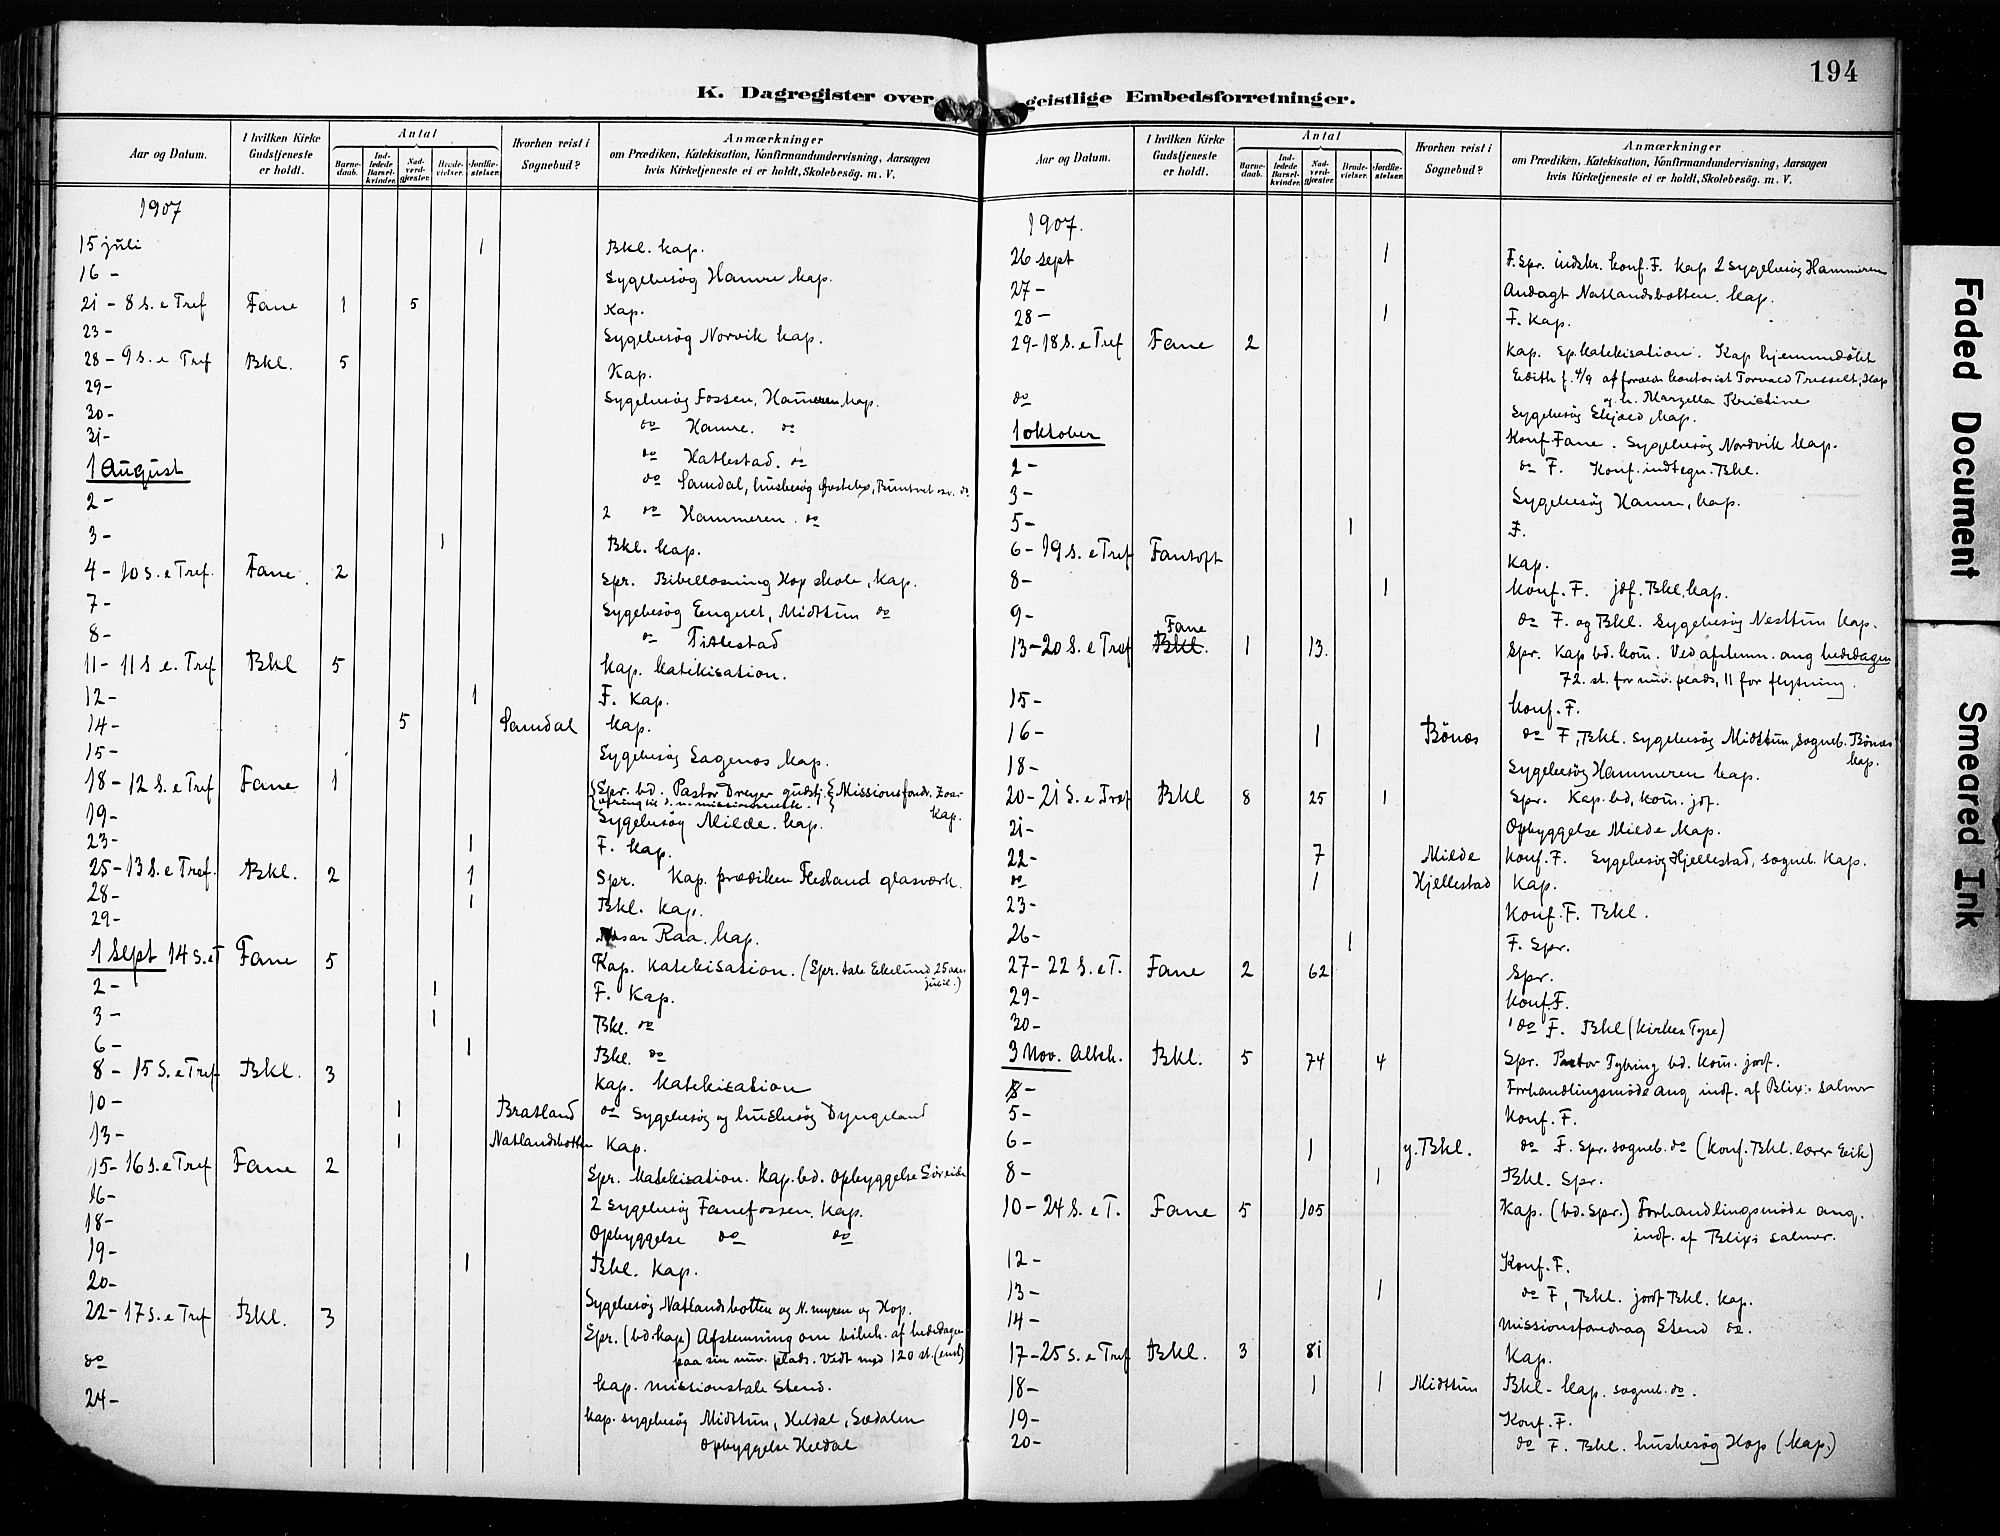 194
K. Dagregister over geistlige Embedsforretninger.
Aar og Datum. | I hvilken Kirke Gudstjeneste er holdt. | Antal | Barnedaab. | Indledede Barselkvinder. | Nadverdgjæster. | Brudevielser. | Jordfæstelser. | Hvorhen reist i Sognebud? | Anmærkninger om Prædiken, Katekisation, Konfirmandundervisning, Aarsagen hvis Kirketjeneste ei er holdt, Skolebesög. m. V.
1907
15 juli | 1 | Bkl. kap.
16 - | Sygebesög Hamre kap.
21 - 8 S. e Tref | Fane | 1 | 5 | Kap.
23 - | Sygebesög Norvik kap.
28 - 9 S. e Tref | Bkl. | 5 | Kap.
29 - | Sygebesög Fossen, Hammeren kap.
30 - | do Hamre. do
31 - | do Hatlestad. do
1 August | do Samdal, husbesög
2 - | 2 do Hammeren. do
3 - | 1 | Bkl. kap.
4 - 10 S. e Tref. | Fane. | 2 | Spr. Bibellæsning Hop skole, kap.
7 - | Sygebesög Enget, Midttun do
8 - | do Titlestad
11 - 11 S. e. Tref | Bkl | 5 | Kap. katekisation.
12 - | 1 | F. Kap.
14 - | 5 | Samdal | kap.
15 - | Sygebesög Sagenos kap.
18 - 12 S. e Tref | Fane | 1 | Spr. bd. Pastor Dreyer gudstj. Missionsfondr.
kap.
19 - | Sygebesög Milde. kap.
23 - | 1 | F. kap.
25 - 13 S. e Tref. | Bkl. | 2 | 1 | Spr. Kap. prædiken Flesland glasværk.
28 - | 1 | Bkl. kap.
29 - | Raa. kap.
1 Sept 14 S. e T | Fane | 5 | Kap. katekisation. (Spr. tale Ekelund 25 aars
jubil.)
2 - | 1 | F. Kap.
3 - | 1 | Bkl. do
6 - | 1 | Bkl. do
8 - 15 S. e Tref | Bkl. | 3 | Kap. katekisation
10 - | 1 | Bratland | do Sygebesög og husbesög Dyngeland
13 - | 1 | Natlandsbotten | Kap.
15 - 16 S. e Tref | Fane | 2 | Spr. Katekisation. Kap. bd. Opbyggelse Söreide
16 - | 2 Sygebesög Fanefossen. Kap.
18 - | Opbyggelse do do
19 - | 1 | Bkl. kap.
20 - | Sygebesög Natlandsbotten og N. myren og Hop.
22 - 17 S. e Tref | Bkl. | 3 | Spr. (bd. kap) Afstemning om bibeh. af bededagen
paa sin nuv. plads. Vedt med 120 st. (enst)
do | kap. missionstale Stend.
24 - | kap. sygebesög Midttun, Heldal, Sædalen
Opbyggelse Heldal
Aar og Datum. | I hvilken Kirke Gudstjeneste er holdt. | Antal | Barnedaab. | Indledede Barselkvinder. | Nadverdgjæster. | Brudevielser. | Jordfæstelser. | Hvorhen reist i Sognebud? | Anmærkninger om Prædiken, Katekisation, Konfirmandundervisning, Aarsagen hvis Kirketjeneste ei er holdt, Skolebesög. m. V.
1907.
26 sept | 1 | F. Spr. indskr. konf. F. kap 2 sygebesög Hammeren
27 - | Andagt Natlandsbotten. kap.
28 - | 1 | F. Kap.
29 - 18 S. e Tref | Fane | 2 | Kap. Sp. katekisation. Kap hjemmedöbt
Edith f. 4/9 af kontorist Torvald Hop
og h. Margella Kristine
do | Sygebesög Skjold kap.
1 Oktober | Konf Fane. Sygebesög Nordvik kap.
2 - | do F. Konf. indtegn. Bkl.
3 - | Sygebesög Hamre, kap.
5 - | 1 | F.
6 - 19 S. e Tref | Fantoft | Kap.
8 - | 1 | Konf. F. jdf. Bkl. kap.
9 - | do F. og Bkl. Sygebesög Nesttun kap.
13 - 20 S. e Tref | Bkl. Fane | 1 | 13. | Spr. Kap bd. kom. Ved afstemn. ang bededagen
72. st. for nuv. plads, 11 for flytning.
15 - | Konf. F.
16 - | 1 | Bönæs | do F, Bkl. Sygebesög Midttun, sogneb. Bönæs
kap.
18 - | Sygebesög Hammeren kap.
20 - 21 S. e Tref | Bkl | 8 | 25 | 1 | Spr. Kap. bd, kom. jdf.
21 - | Opbyggelse Milde Kap.
22 - | 7 | Milde | Konf. F. Sygebesög Hjellestad, sogneb. Kap.
do | 1 | Hjellestad | Kap.
23 - | Konf. F. Bkl.
26 - | 1 | F. Spr.
27 - 22 S. e T. | Fane | 2 | 62 | Spr.
29 - | Konf. F.
30 - | do F. Bkl (kirken Tyse)
3 Nov. Alleh. | Bkl. | 5 | 74 | 4 | Spr. Pastor Fybring bd. kom. jordf.
- | Forhandlingsmöde ang indf. af Blix's salmer
5 - | Konf. F.
6 - | 1 | y. Bkl. | do F. Spr. sogneb. do (konf. Bkl. lærer Eik)
8 - | 1 | Bkl. Spr.
10 - 24 S. e T. | Fane | 5 | 105 | Kap. (bd. Spr.) Forhandlingsmöde ang.
indf. af Blix's salmer.
12 - | Konf. F.
13 - | 1 | do F, Bkl. jordf Bkl. kap.
14 - | Missionsforedrag Stend do.
17 - 25 S. e Tref | Bkl. | 3 | 81 | Kap.
18 - | 1 | 1 | Midttun | Bkl - kap. sogneb. do.
19 - | Konf. F.
20 - | do F. Bkl. husbesög Hop (kap.)
Faded Document
Smeared Ink